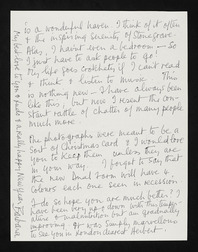 is a wonderful haven I think of it often
& the inspiring serenity of Stonegrave.
Alas, I haven't even a bedroom — so
I just have to ask people to go!
My life goes crotchety if I can't read
& think & listen to music. This
is nothing new – I have always been
like this, but now I resent the con-
stant rattle of chatter of many people
much more.
The photographs were meant to be a
sort of Christmas card & I would love
you to keep them unless they are
in your way. I forgot to say that
the new small room will have 4
colours each one seen in recession.
I do so hope you are much better? I
have been very up & down with the
& malnutrition but am gradually
improving. It was simply marvellous
to see you in London dearest Herbert.
My best love to you & Ludo & a really happy New Year, Barbara